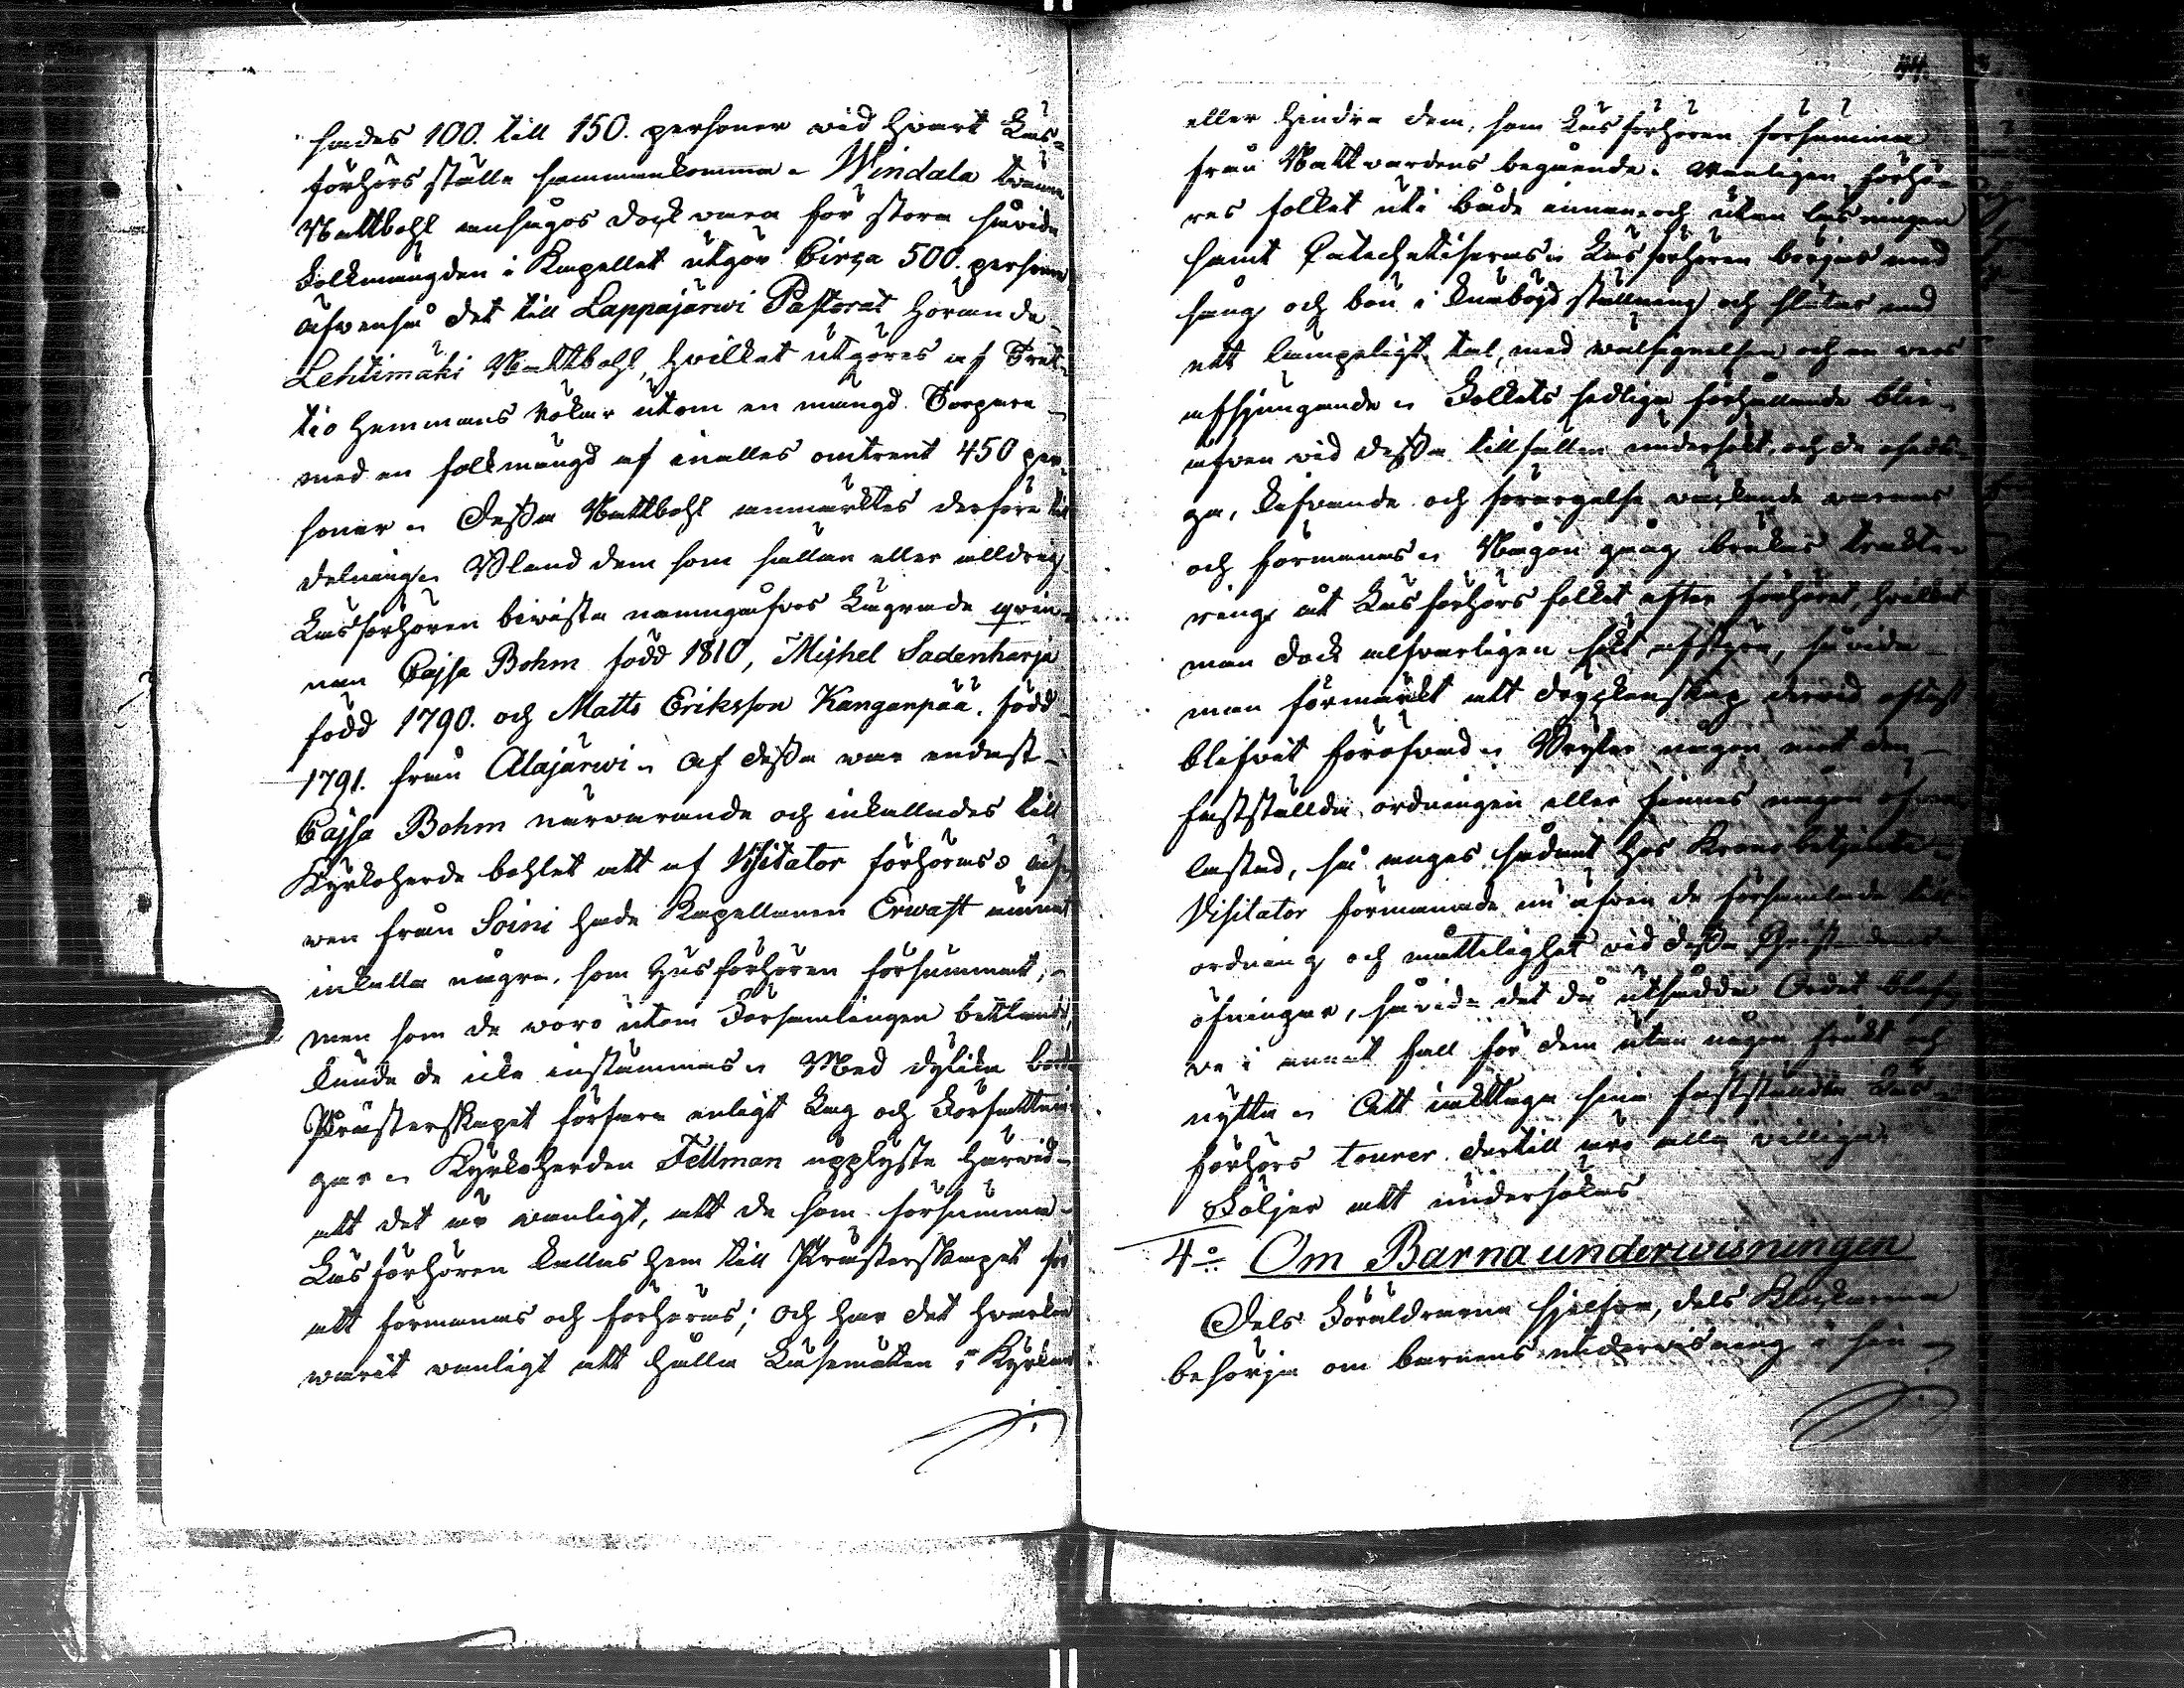 hades 100. till 150. personer vid hvart Läs-
förhörs ställe sammankomma. Windala
Nattbohl ansågos dock vara för stora såvida
Folkmängden i Kapellet utgör Circa 500. personer
äfvenså det till Lappajärwi Pastorat hörande
Lehtimäki Nattbohl, hvilket utgöres af Tret-
tio Hemmans Rökar utom en mängd Torpare
med en folkmängd af inalles omtrent 450 per-
soner. Dessa Nattbohl anmärktes derföre till
delning. Bland dem som sällan eller alldrig
Läsförhören biwista namngåfvos Lägrade qvin-
nan Cajsa Bohm född 1810, Michel Sadenharja
född 1790. och Matts Eriksson Kanganpää. född
1791. från Alajärwi. Af dessa war endast
Cajsa Bohm närwarande och inkallades till
Kyrkoherde bohlet att af Visitator förhöras. äf-
wen från Soini hade Kapellanen Erwast ämnat
inkalla några, som Husförhören försummat,
men som de woro utom Församlingen bettlande,
kunde de icke instämmas. Med dylika borde
Prästerskapet förfara enligt Lag och Författnin-
gar. Kyrkoherden Fellman upplyste härwid
att det är wanligt, att de som försumma
Läsförhören kallas hem till Prästerskapet för
att förmanas och förhöras; och har det hvarken
warit wanligt att hålla Läsemöten i Kyrkan
eller hindra dem, som Läsförhören försumma
från Nattvardens begående. Wanligen förhö-
res folket uti både innan och utan läsningen
samt Catechetiseras. Läsförhören börjas med
sång och bön i knäböjd ställning och slutas med
ett lämpeligt tal, med wälsignelsen och en vers
afsjungande. Folkets sedliga förhållande blir
äfven vid dessa tillfällen undersökt, och de osedli-
ga, kifvande och förargelse wäckande warnas
och förmanas. Någon gång brukas trakte-
ring åt Läsförhörs folket efter förhöret, hvilket
man dock alfvarligen sökt afstyra, såvida
man förmärkt att dryckenskap derwid oftast
blifvit föröfvad. Bryter någon mot den
fastställda ordningen eller finnes någon öfver-
lastad, så anges sådant hos Kronobetjente.
Visitator förmanade nu äfven de församlade till
ordning och måttelighet vid dessa
öfningar, såvida det då utsådda Ordet blefve
i annat fall för dem utan någon frukt och
nytta. Att iakttaga sina fastställda Läs-
förhörs tourer dertill äro alla villiga
Följer att undersökas
4:o Om Barnaunderwisningen
Dels Föräldrarna sjelfva, dels Klockarena
besörja om barnens underwisning i sin